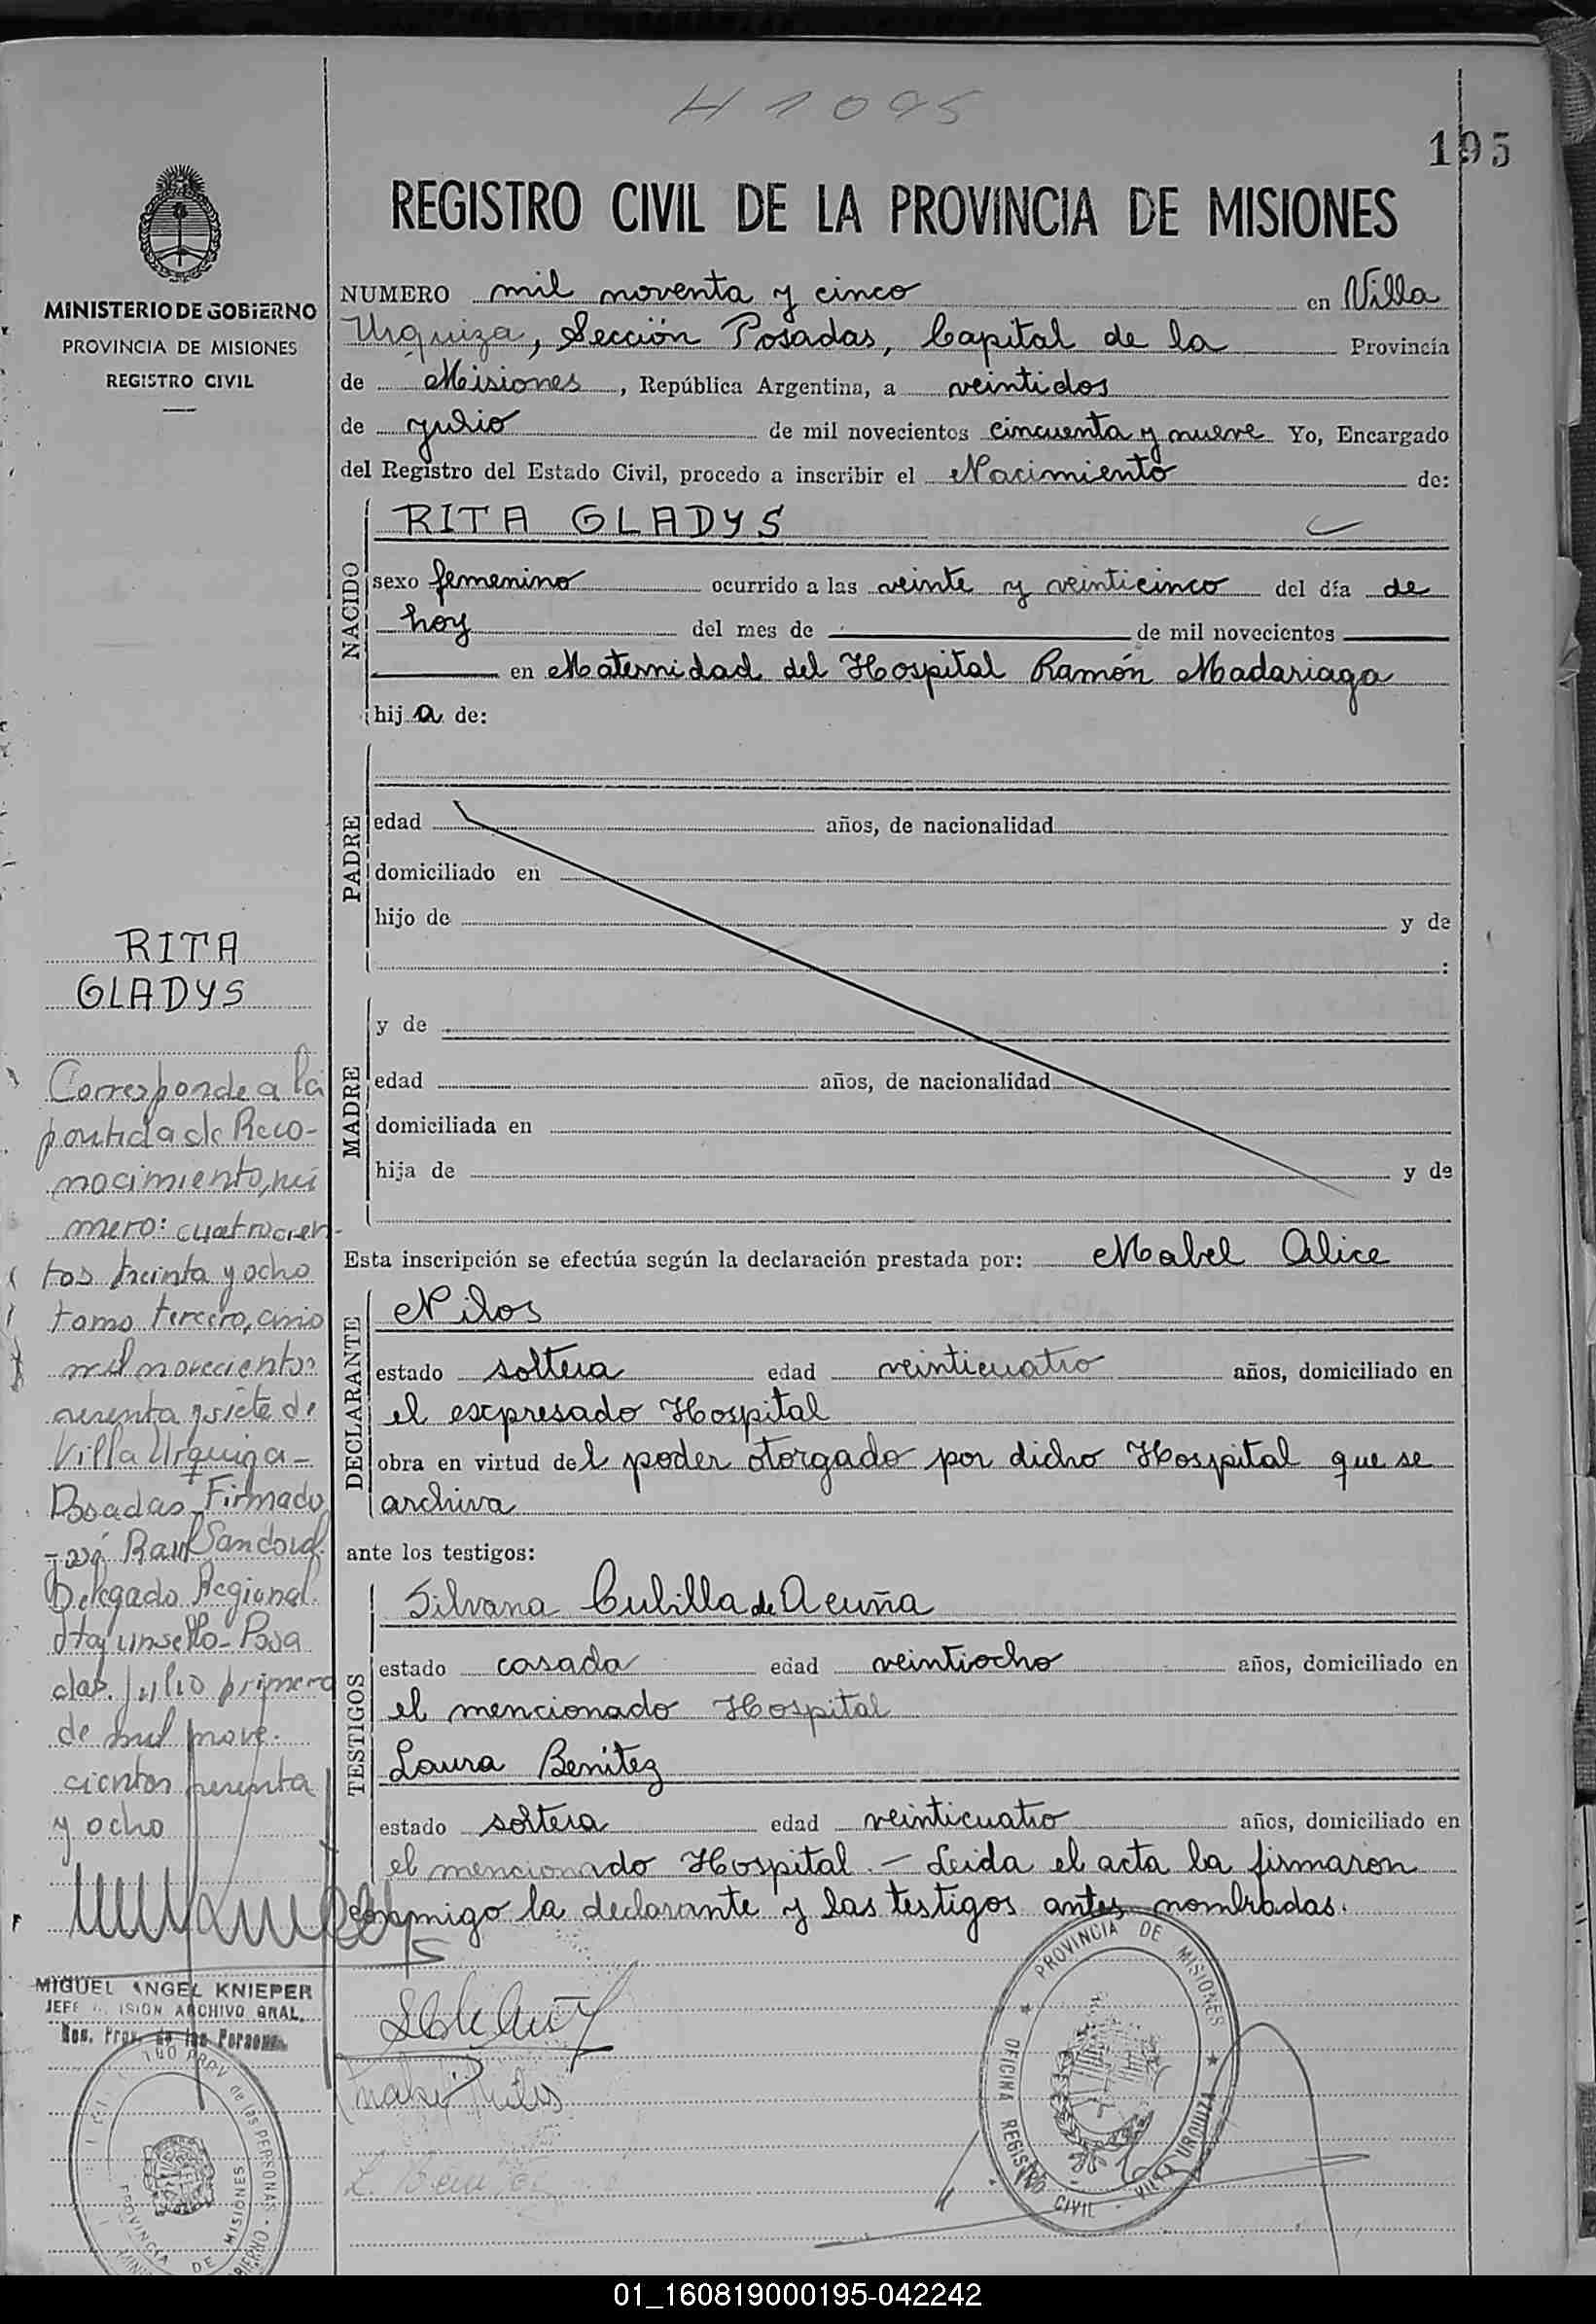 H 1095
195
REGISTRO CIVIL DE LA PROVINCIA DE MISIONES
MINISTERIO DE GOBIERNO
PROVINCIA DE MISIONES
REGISTRO CIVIL
NUMERO mil noventa y cinco en Villa
Urquiza, Sección Posadas, Capital de la Provincia
de Misiones, República Argentina, a veintidos
de julio de mil novecientos cincuenta y nueve Yo, Encargado
del Registro del Estado Civil, procedo a inscribir el Nacimiento de:
NACIDO
RITA GLADYS
sexo femenino ocurrido a las veinte y veinticinco del día de
hoy del mes de de mil novecientos
en Maternidad del Hospital Ramón Madariaga
hija de:
PADRE
edad años, de nacionalidad
domiciliado en
hijo de y de
:
MADRE
y de
edad años, de nacionalidad
domiciliada en
hija de y de
Esta inscripción se efectúa según la declaración prestada por: Mabel Alice
DECLARANTE
Nilos
estado soltera edad veinticuatro años, domiciliado en
el expresado Hospital
obra en virtud del poder otorgado por dicho Hospital que se
archiva
ante los testigos:
TESTIGOS
Silvana Cubilla de Acuña
estado casada edad veintiocho años, domiciliado en
el mencionado Hospital
Laura Benitez
estado soltera edad veinticuatro años, domiciliado en
el mencionado Hospital.- Leida el acta la firmaron
conmigo la declarante y las testigos antes nombradas.
RITA
GLADYS
Corresponde a la
partida de Reco-
nocimiento, nú
mero: cuatrocien-
tos treinta y ocho
tomo tercero, año
mil novecientos
sesenta y siete de
Villa Urquiza-
Posadas Firmado
José Raul Sandoval
Delegado Regional.
Hay un sello- Posa
das. Julio primero
de mil nove-
cientos sesenta
y ocho
MIGUEL ANGEL KNIEPER
JEFE ISION ARCHIVO GRAL.
Reg. Prov. de las Personas
PROV de las PERSONAS
PROVINCIA DE MISIONES
PROVINCIA DE MISIONES
OFICINA REGISTRO CIVIL - VILLA URQUIZA
01_160819000195-042242